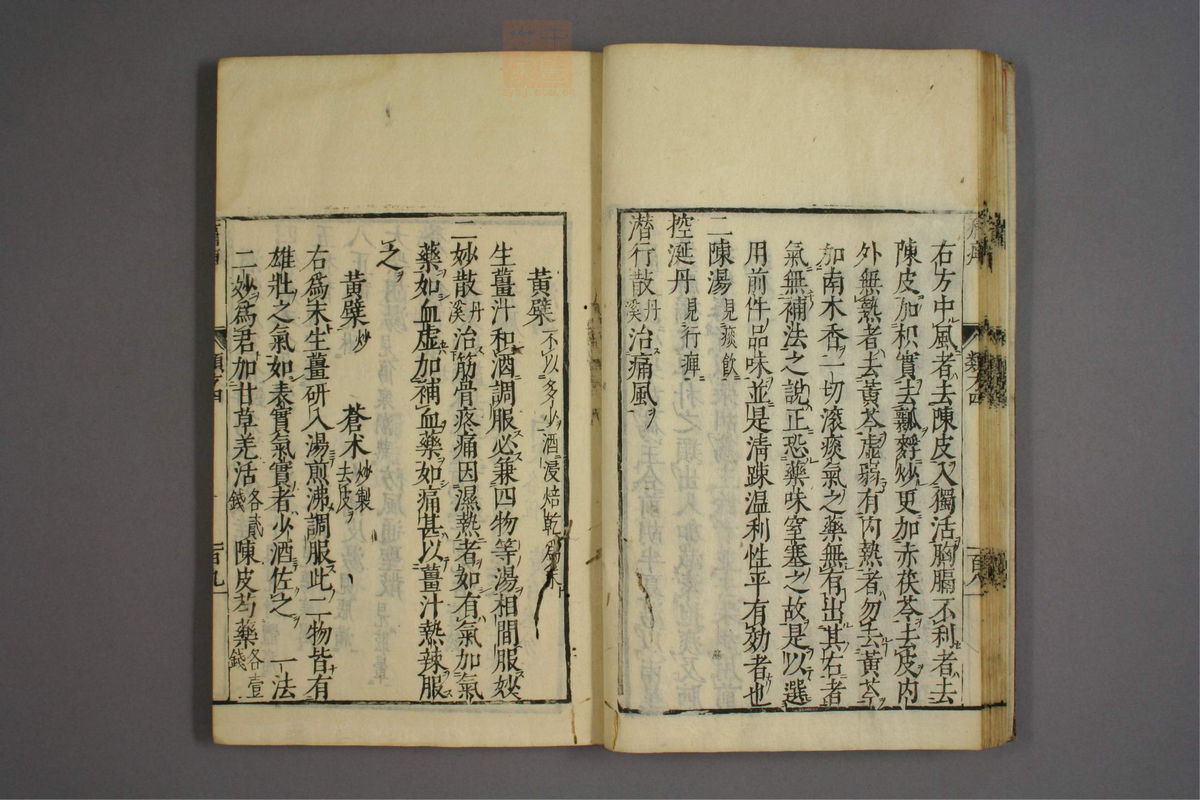 右方中風者去陳皮入獨活胸膈不利者去
陳皮加枳實去瓤麩炒更加赤茯苓去皮内
外無熱者去黄芩虚弱有内熱者勿去黄芩
加南木香一切滚痰氣之藥無有出其右者
氣無補法之說正恐藥味窒塞之故是以選
用前件品味並是清踈温利性平有効者也
二陳湯見痰飲
控涎丹見行痺
潛行散丹溪治痛風
黄蘗不以多少酒浸焙乾爲末
生薑汁和酒調服必兼四物等湯相間服妙
二妙散丹溪治筋骨疼痛因濕熱者如有氣加氣
藥如血虚加補血藥如痛甚以薑汁熱辣服
之
黄蘗炒 蒼术炒製去皮
右爲末生薑研入湯煎沸調服此二物皆有
雄壯之氣如表實氣實者少酒佐之 一法
二妙爲君加甘草羌活各貳錢陳皮芍藥各壹錢
類方四
百九